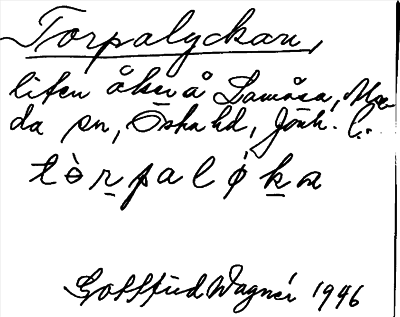 Torpalyckan,
liten åker å Lamåsa, Mar
da sn, Östra hd, Jönk. l.
tòrpaløka
Gottfrid Wagnér 1946